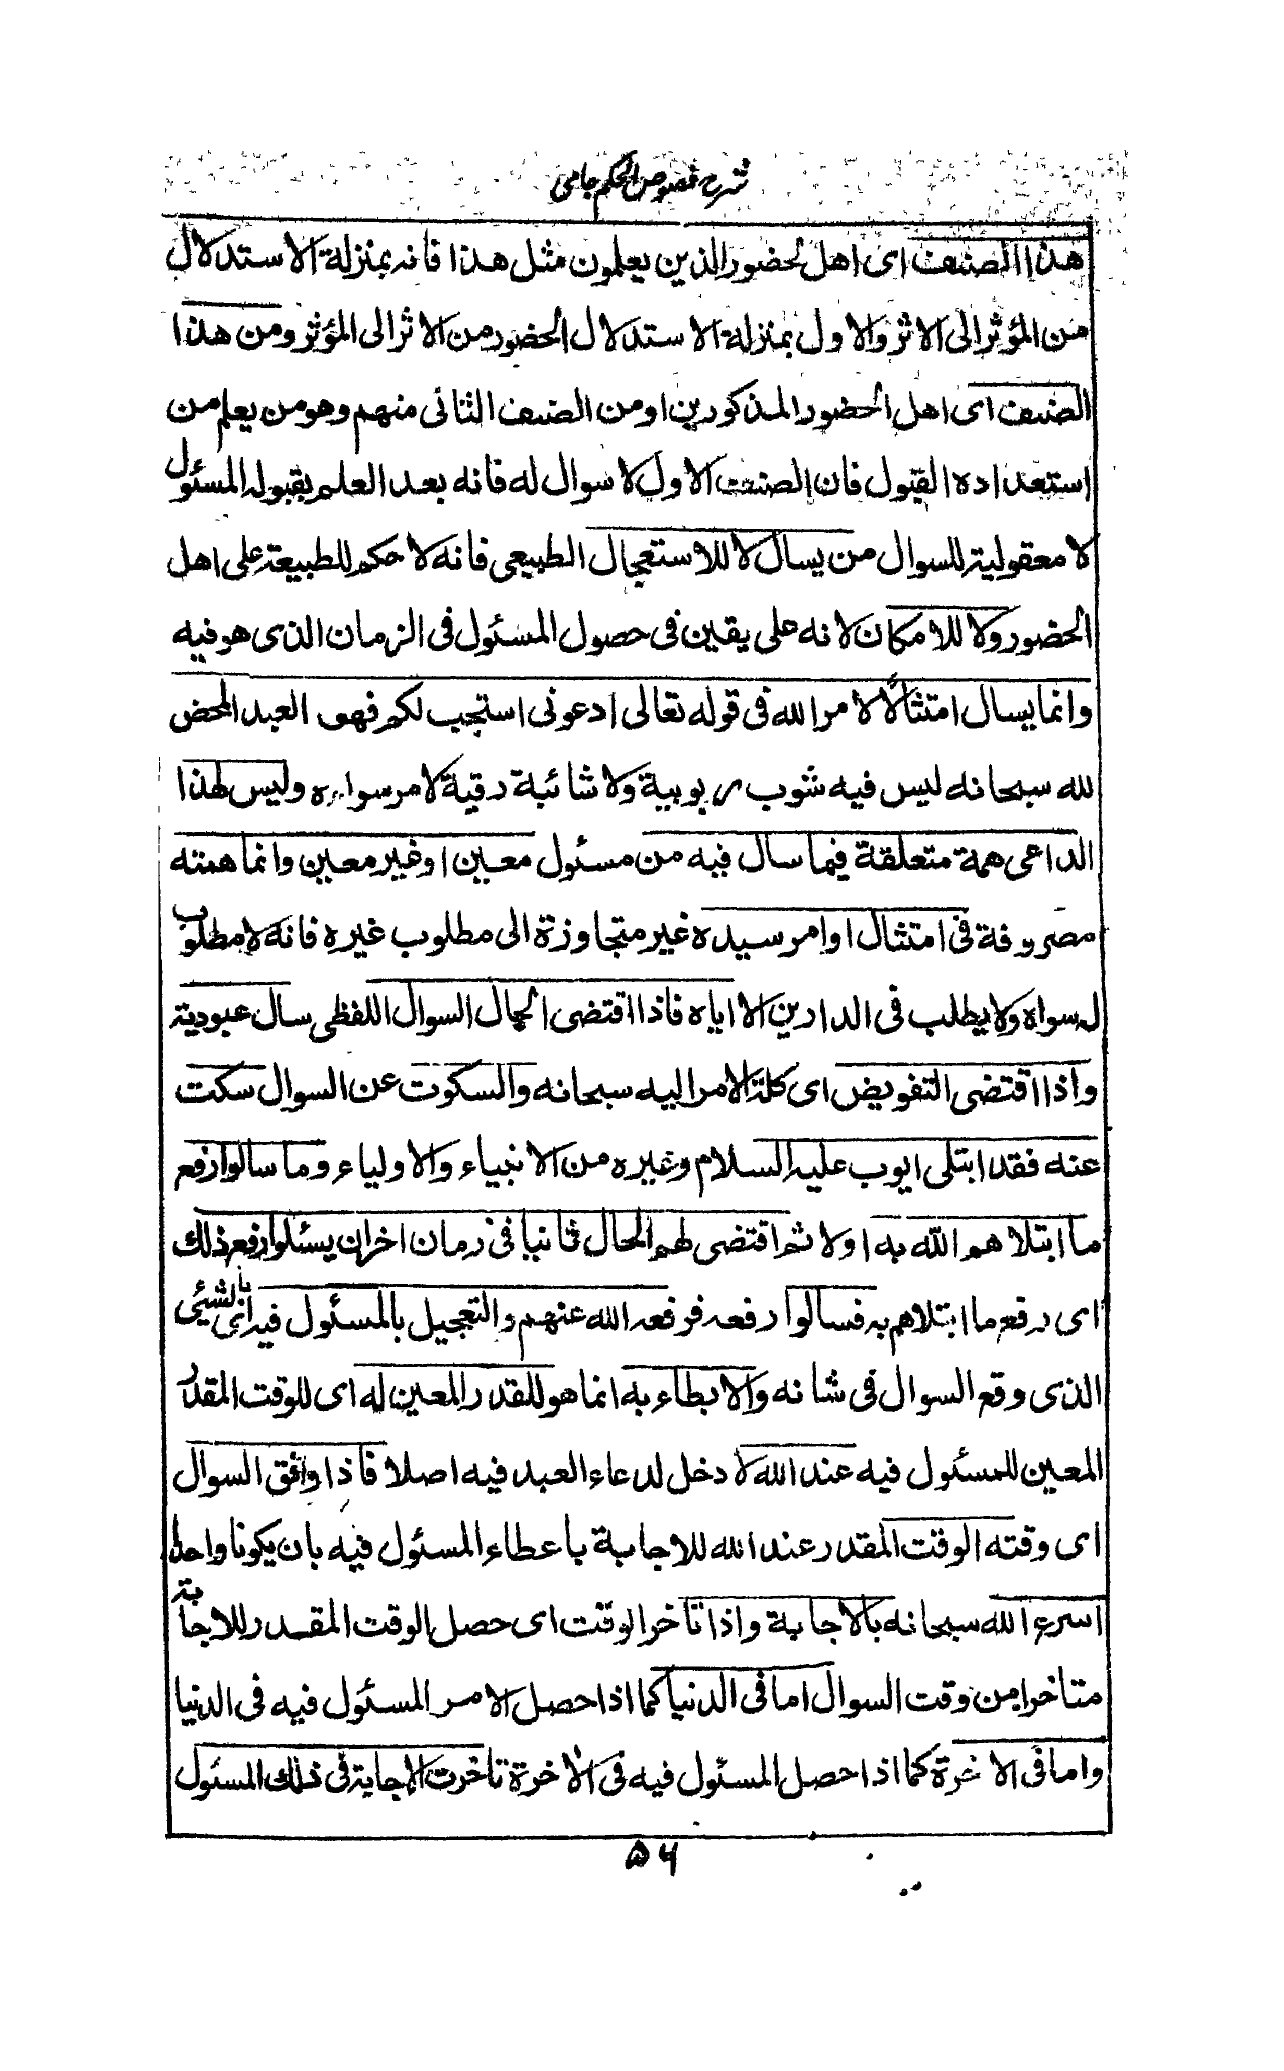 شرح فصوص الحكم جامى
هذا الصنف اى اهل لحضور الذين يعلمون مثل هذا فانه بمنزلة الاستدلال
من المؤثر الى الاثر والاول بمنزلة الاستدلال الحضور من الاثر الى المؤثر ومن هذا
الصنف اى اهل الحضور المذكورين اومن الصنف الثانى منهم وهو من يعلم من
استعداده القبول فان الصنف الاول لا سوال له فانه بعد العلم بقبوله المسئول
لا معقولية للسوال من يسال لا للاستعجال الطبيعى فانه لا حكم للطبيعة على اهل
الحضور ولا للامكان لانه على يقين فى حصول المسئول فى الزمان الذى هو فيه
وانما يسال امتثالًا لامر الله فى قوله تعالى ادعونى استجب لكم فهو العبد المحض
لله سبحانه ليس فيه شوب ربوبية ولا شائبة رقية لامر سواه وليس لهذا
الداعى همة متعلقة فيما سال فيه من مسئول معين اوغير معين وانما همته
مصروفة فى امتثال اوامر سيده غير متجاوزة الى مطلوب غيره فانه لا مطلوب
له سواه ولا يطلب فى الدارين الا اياه فاذا اقتضى الحال السوال اللفظى سال عبودية
واذا اقتضى التفويض اى كلة الامر اليه سبحانه والسكوت عن السوال سكت
عنه فقد ابتلى ايوب عليه السلام وغيره من الانبياء والاولياء وما سالوا رفع
ما ابتلاهم الله به اولا ثم اقتضى لهم الحال ثانيا فى زمان اخر ان يسئلوا رفع ذلك
اى رفع ما ابتلاهم به فسالوا رفعه فرفعه الله عنهم والتعجيل بالمسئول فيه اى بالشيئى
الذى وقع السوال فى شانه والابطاء به انما هو للقدر المعين له اى للوقت المقدر
المعين للمسئول فيه عند الله لا دخل لدعاء العبد فيه اصلا فاذا وافق السوال
اى وقته الوقت المقدر عند الله للاجابة باعطاء المسئول فيه بان يكونا واحدا
اسرع الله سبحانه بالاجابة واذا تاخر الوقت اى حصل الوقت المقدر للاجابة
متاخرا من وقت السوال اما فى الدنيا كما اذا حصل الامر المسئول فيه فى الدنيا
واما فى الاخرة كما اذا حصل المسئول فيه فى الاخرة تاخرت الاجابة فى ذلك المسئول
۵۶